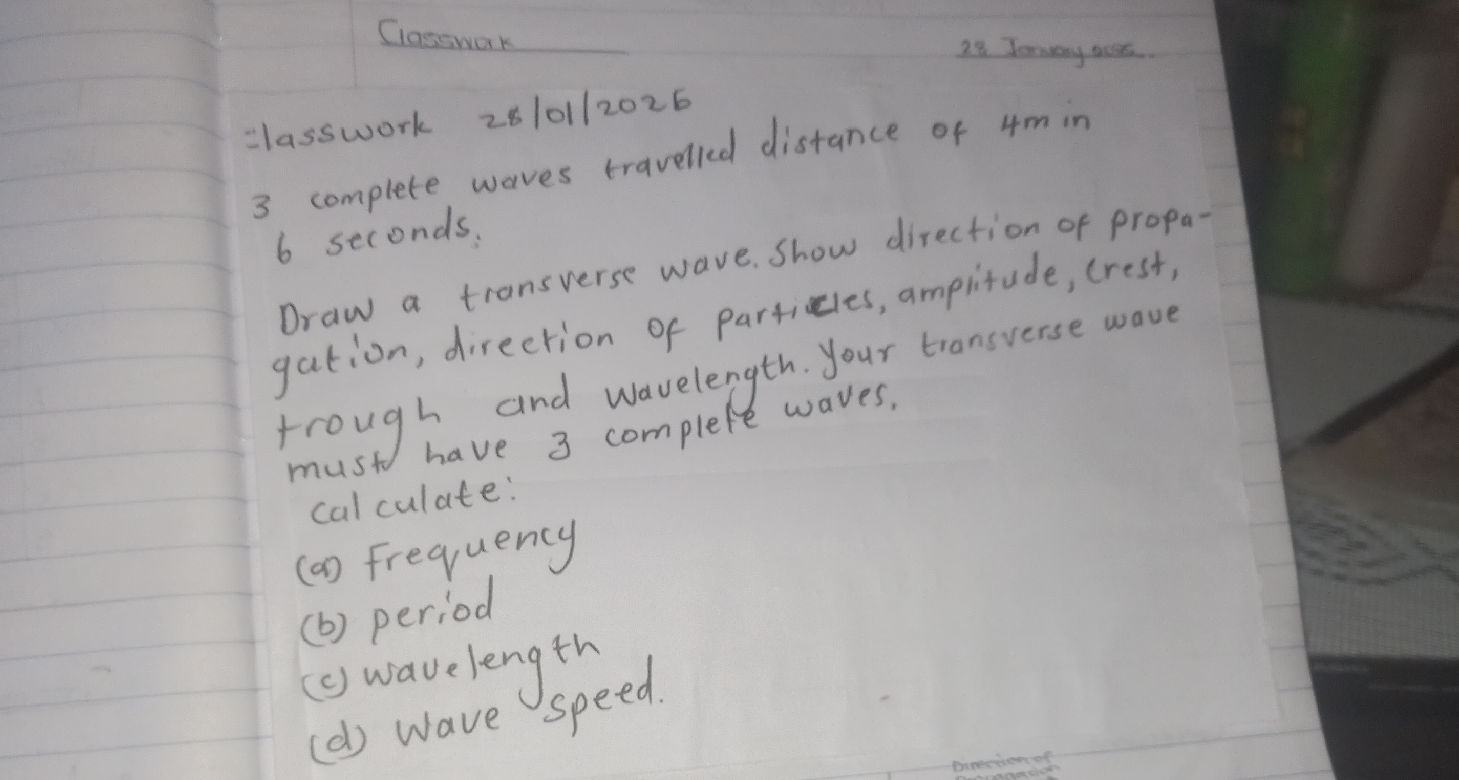 Classwork
28 January
classwork 28/01/2026
3 complete waves travelled distance of 4m in
6 seconds.
Draw a transverse wave. Show direction of propa-
gation, direction of particles, amplitude, crest,
trough and wavelength. Your transverse wave
must have 3 complete waves.
calculate:
(a) Frequency
(b) period
(c) wavelength
(d) wave speed.
Direction of